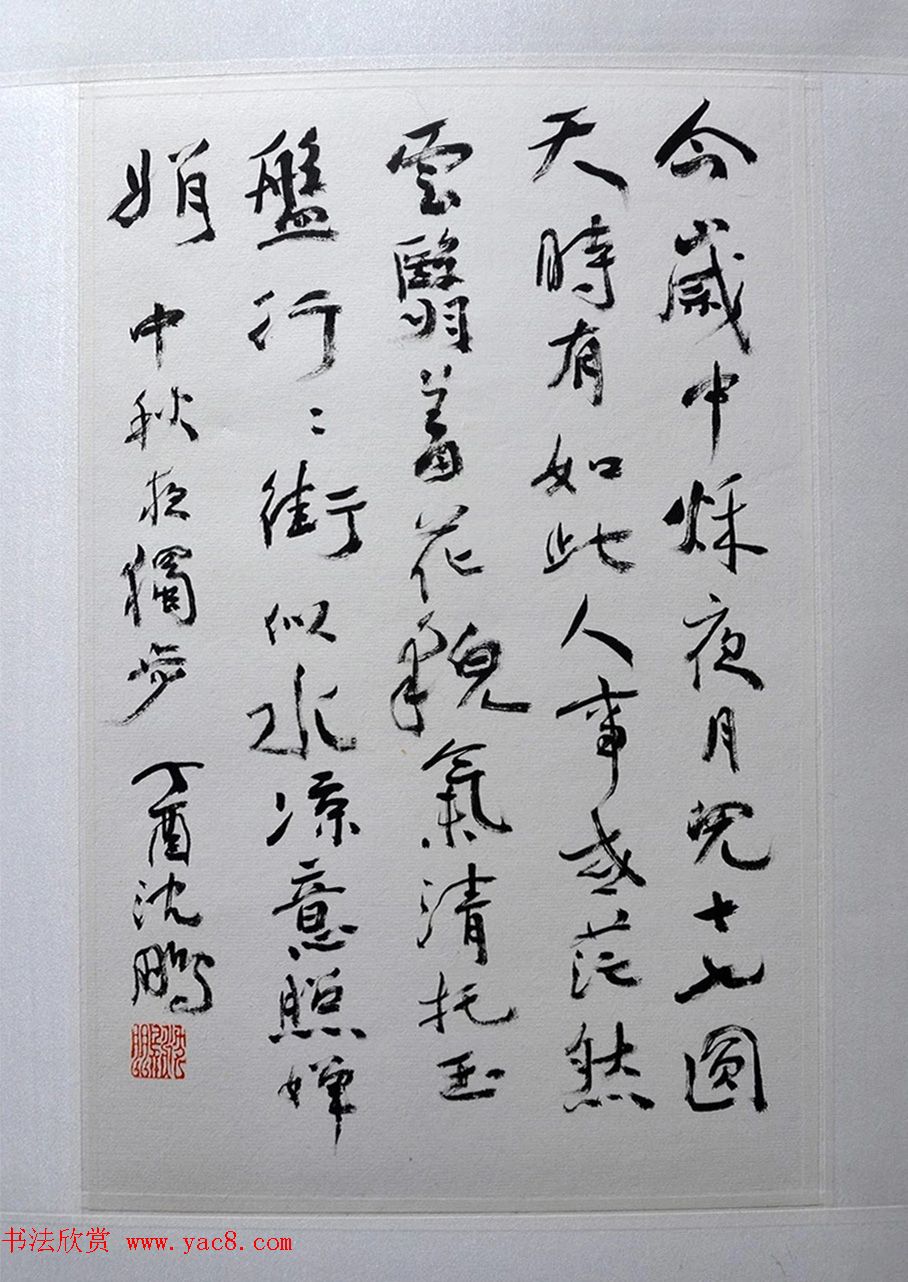 今歲中秌夜月兒十七圆
天時有如此人事感茫然
雲翳羞花貌氣清托玉
盤行〻街似水凉意照嬋
娟
中秋夜獨步
丁酉沈鹏
书法欣赏 www.yac8.com